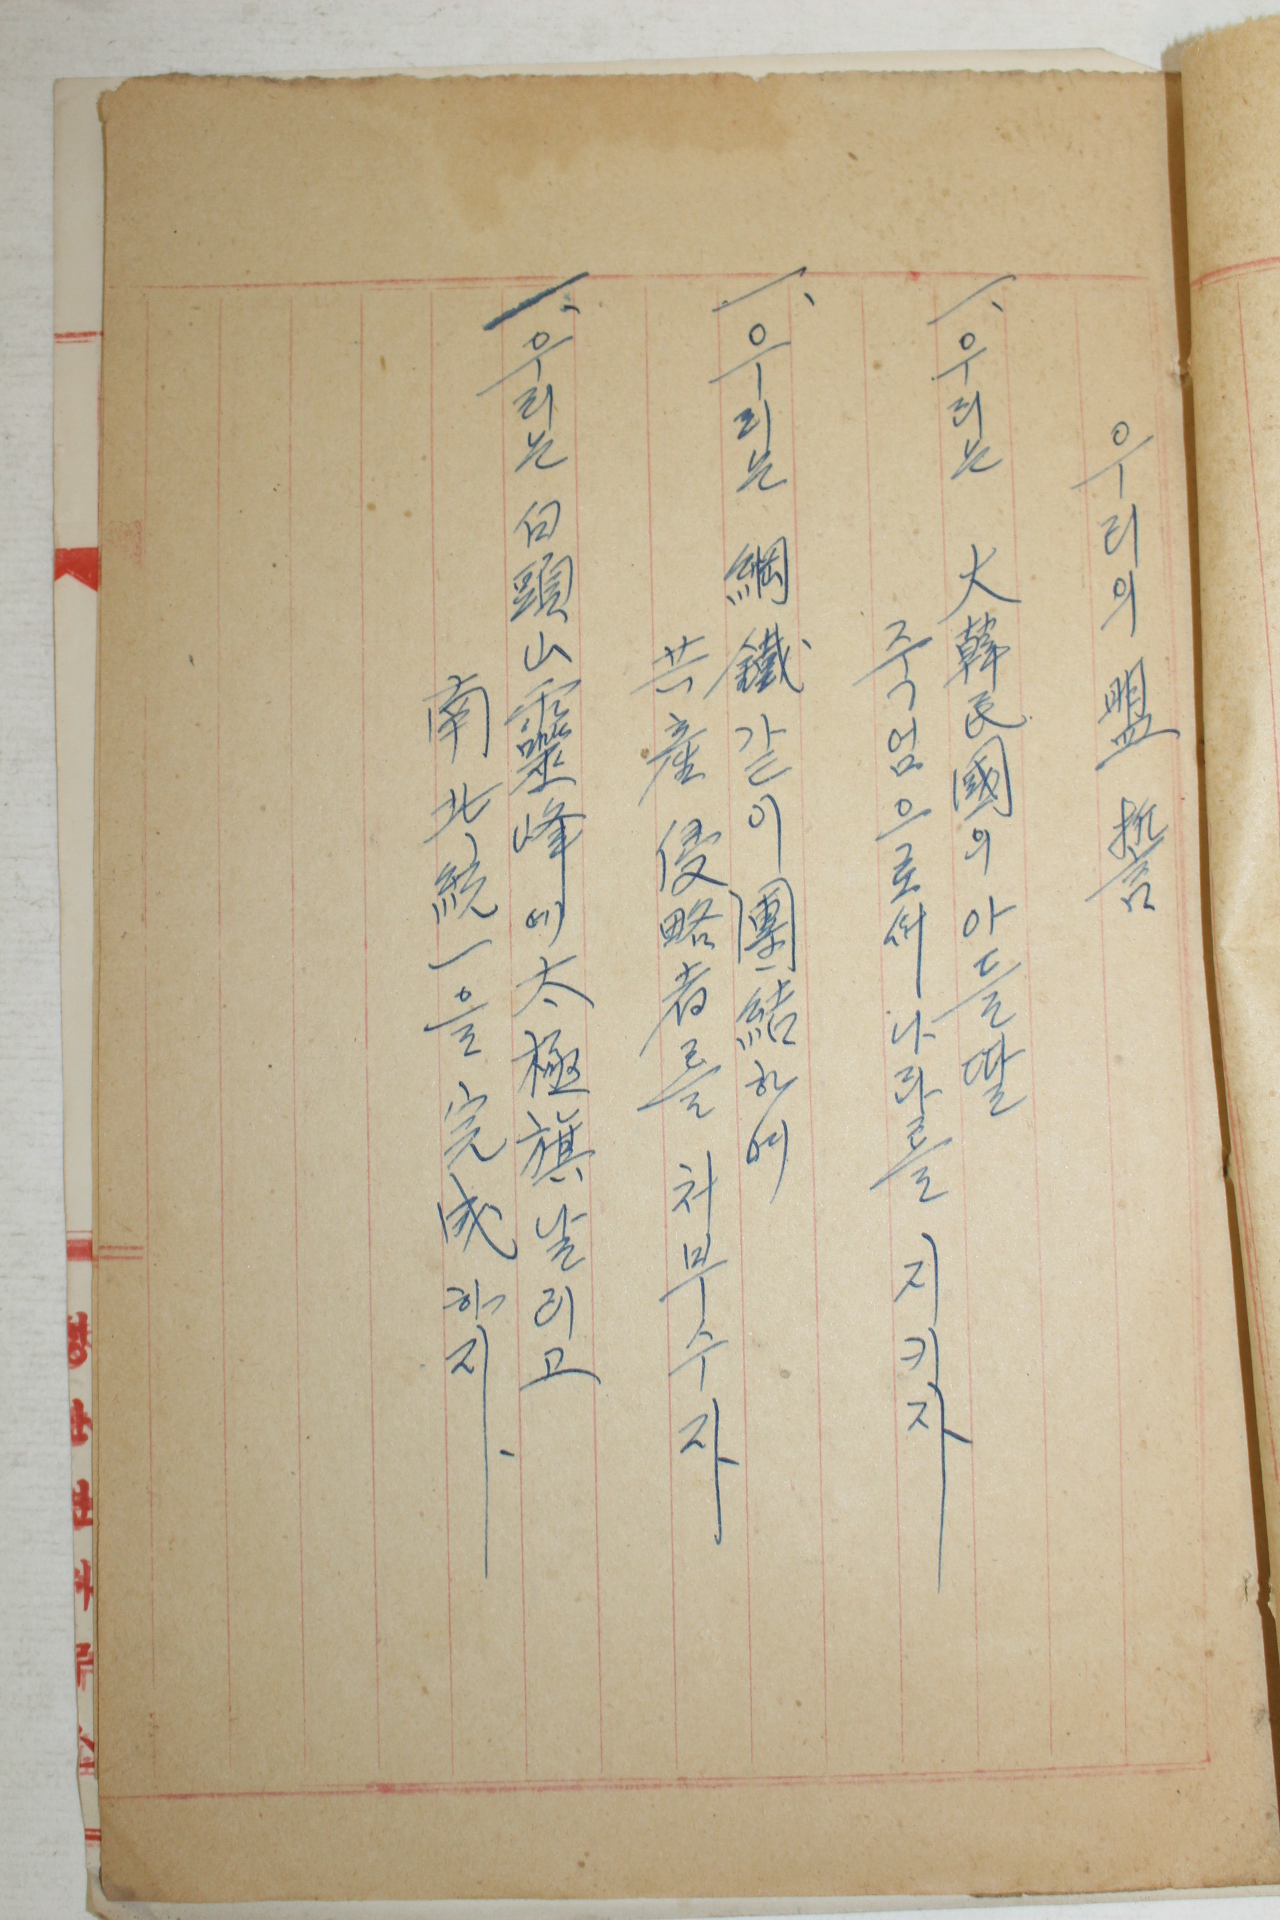 우리의 盟誓
一、우리는 大韓民國의 아들딸
죽엄으로써 나라를 지키자
一、우리는 綱鐵같이 團結하여
共産侵略者를 처부수자
一、우리는 白頭山靈峰에 太極旗 날리고
南北統一을 完成하자.